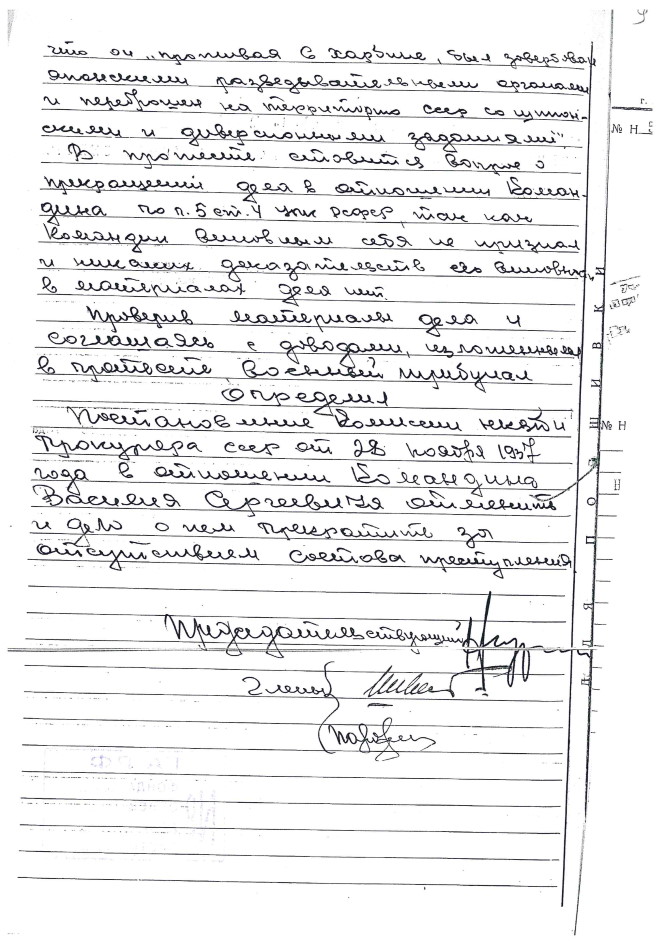 что он „проживая в Харбине, был завербован
японскими разведывательными органами
и переброшен на территорию СССР со шпион-
скими и диверсионными заданиями".
В протесте ставится вопрос о
прекращении дела в отношении Коман-
дина по п. 5 ст. 4 УПК РСФСР, так как
Командин виновным себя не признал
и никаких доказательств его виновности
в материалах дела нет.
Проверив материалы дела и
соглашаясь с доводами, изложенными
в протесте, Военный трибунал
Определил
Постановление Комиссии НКВД и
Прокурора СССР от 28 ноября 1937
года в отношении Командина
Василия Сергеевича отменить
и дело о нем прекратить за
отсутствием состава преступления
Председательствующий
Члены
г.
№ Н
№ Н
Н
ДЛЯ ПОДШИВКИ